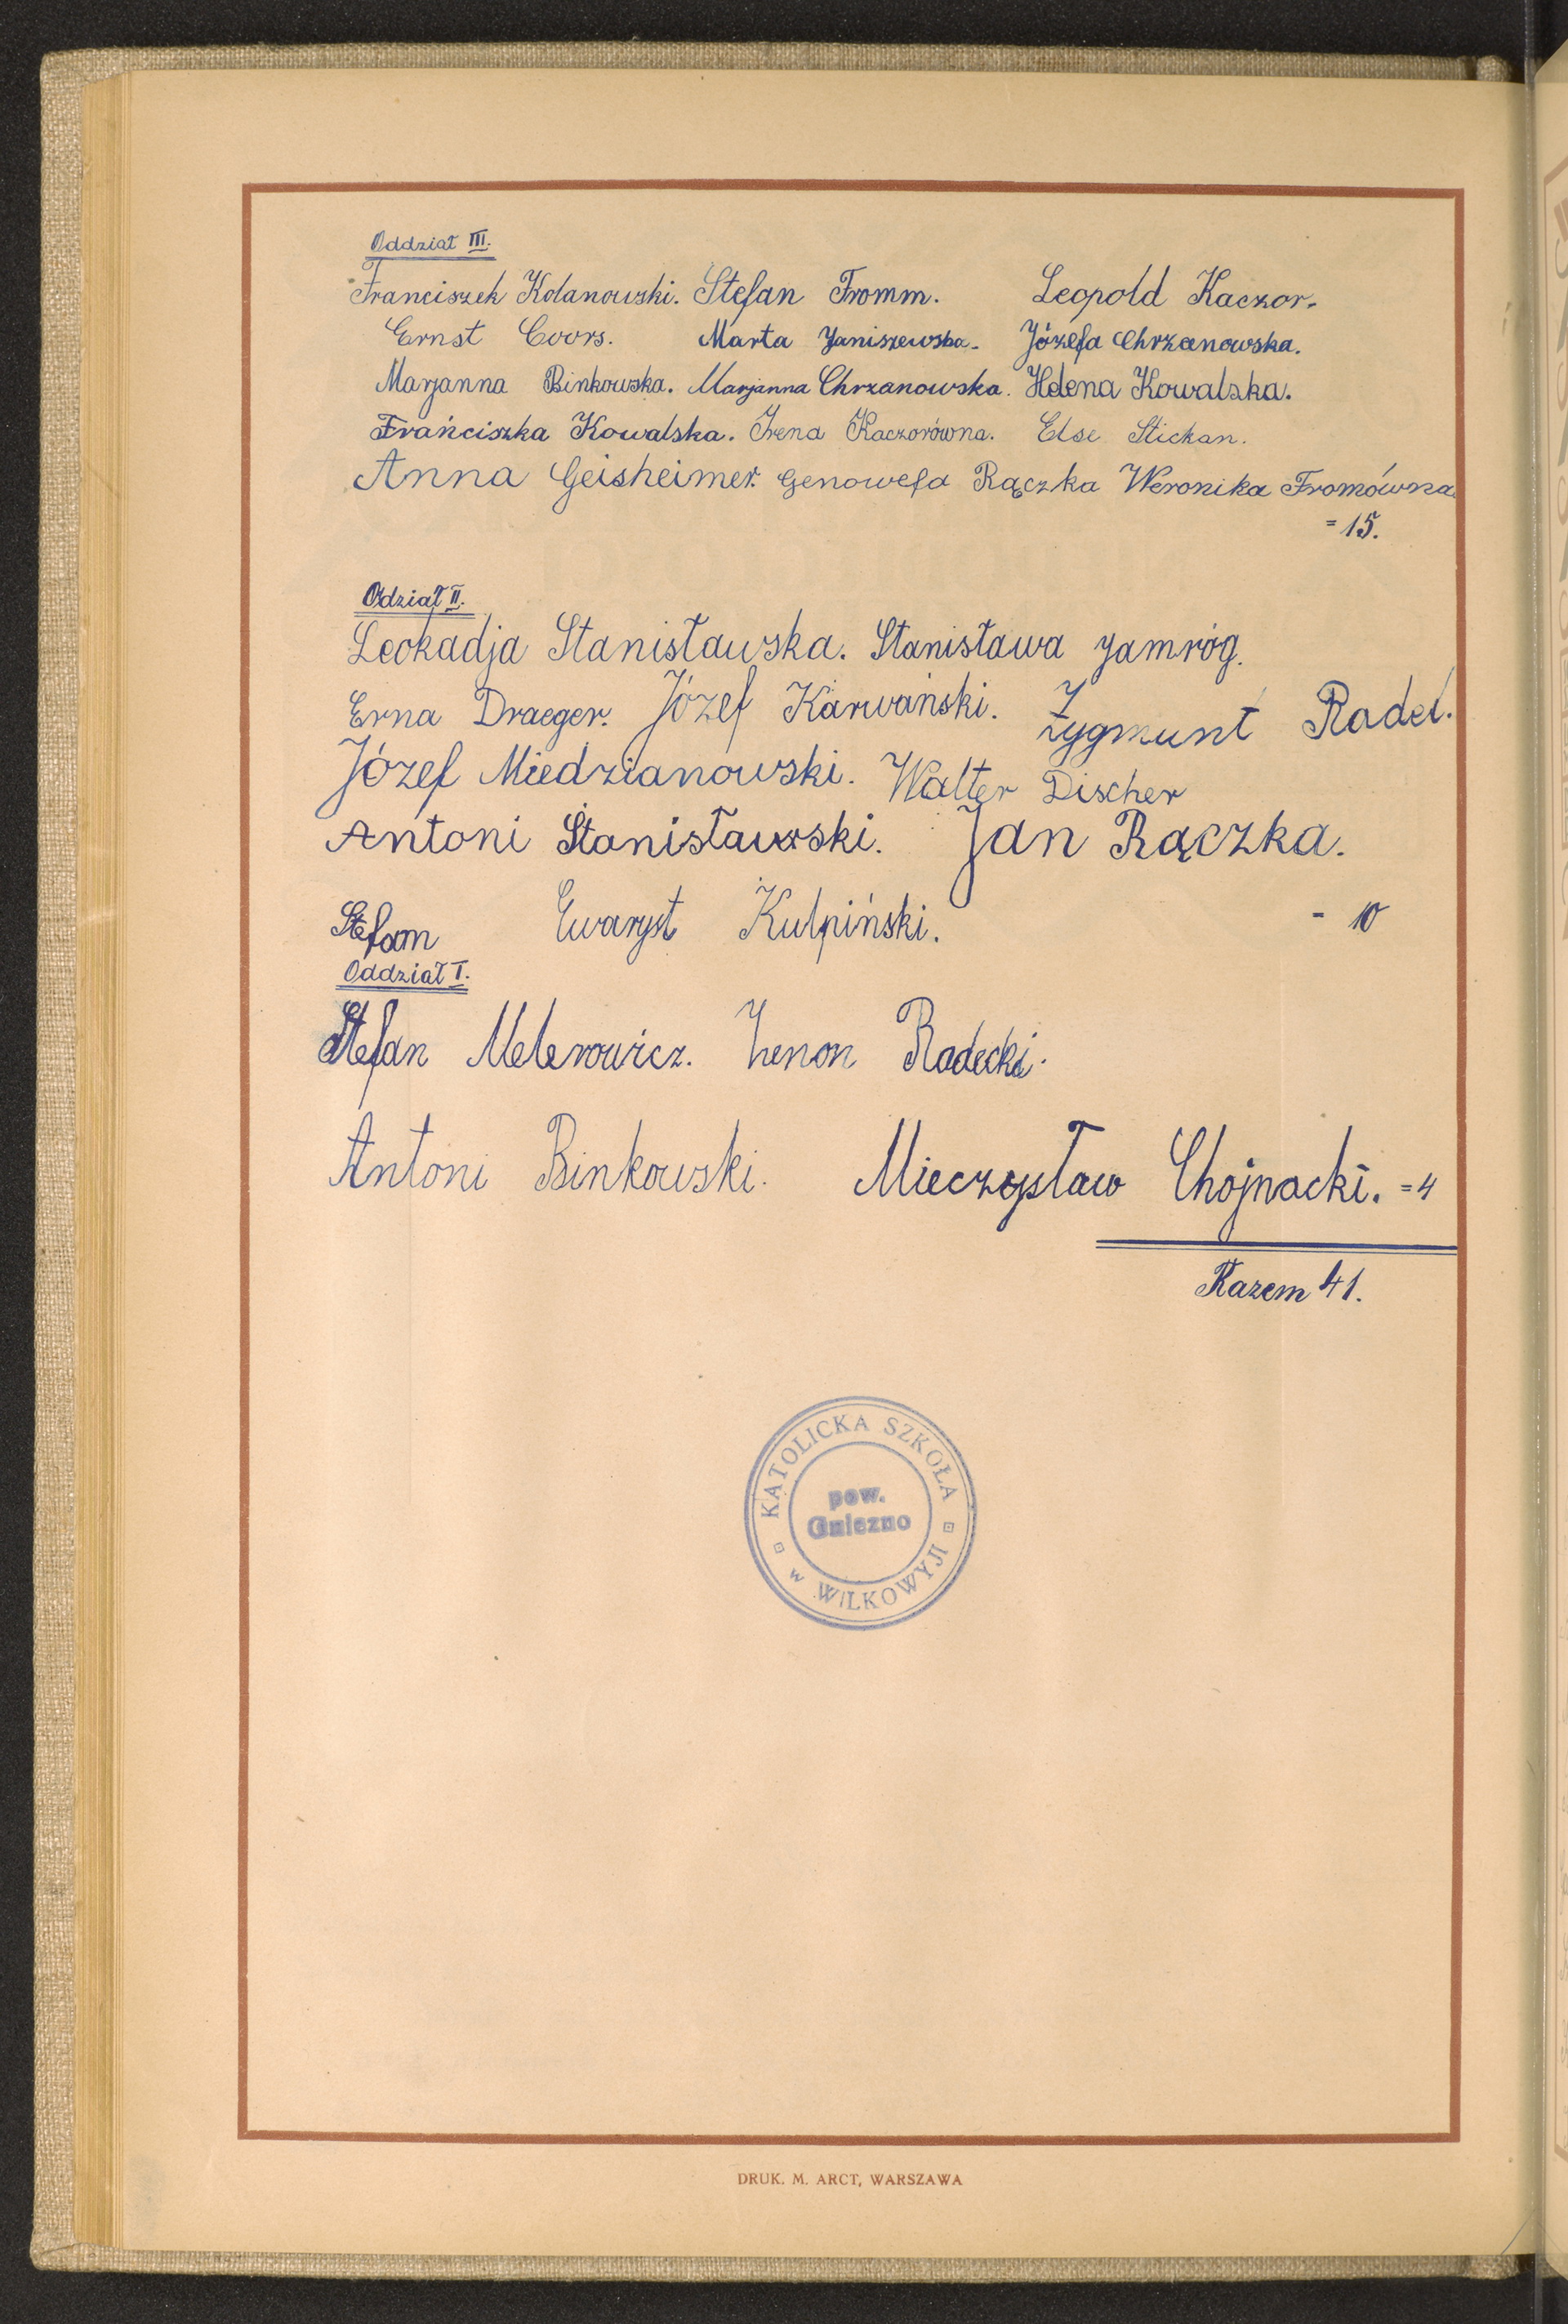 Oddział III.
Franciszek Kolanowski. Stefan Fromm. Leopold Kaczor.
Ernst Coors. Marta Janiszewska. Józefa Chrzanowska.
Marjanna Binkowska. Marjanna Chrzanowska. Helena Kowalska.
Frańciszka Kowalska. Irena Kaczorówna. Else Stickan.
Anna Geisheimer. Genowefa Rączka Weronika Fromówna
= 15.
Odział II.
Leokadja Stanisławska. Stanisława Jamróg.
Erna Draeger. Józef Karwański. Zygmunt Radel.
Józef Miedzianowski. Walter Discher
Antoni Stanisławski. Jan Rączka.
Stefan Ewaryst Kulpiński. - 10
Oddział I.
Stefan Melerowicz. Zenon Radecki.
Antoni Binkowski. Mieczysław Chojnacki. = 4
Razem 41.
KATOLICKA SZKOŁA
w WILKOWYJI
pow.
Gniezno
DRUK. M. ARCT, WARSZAWA